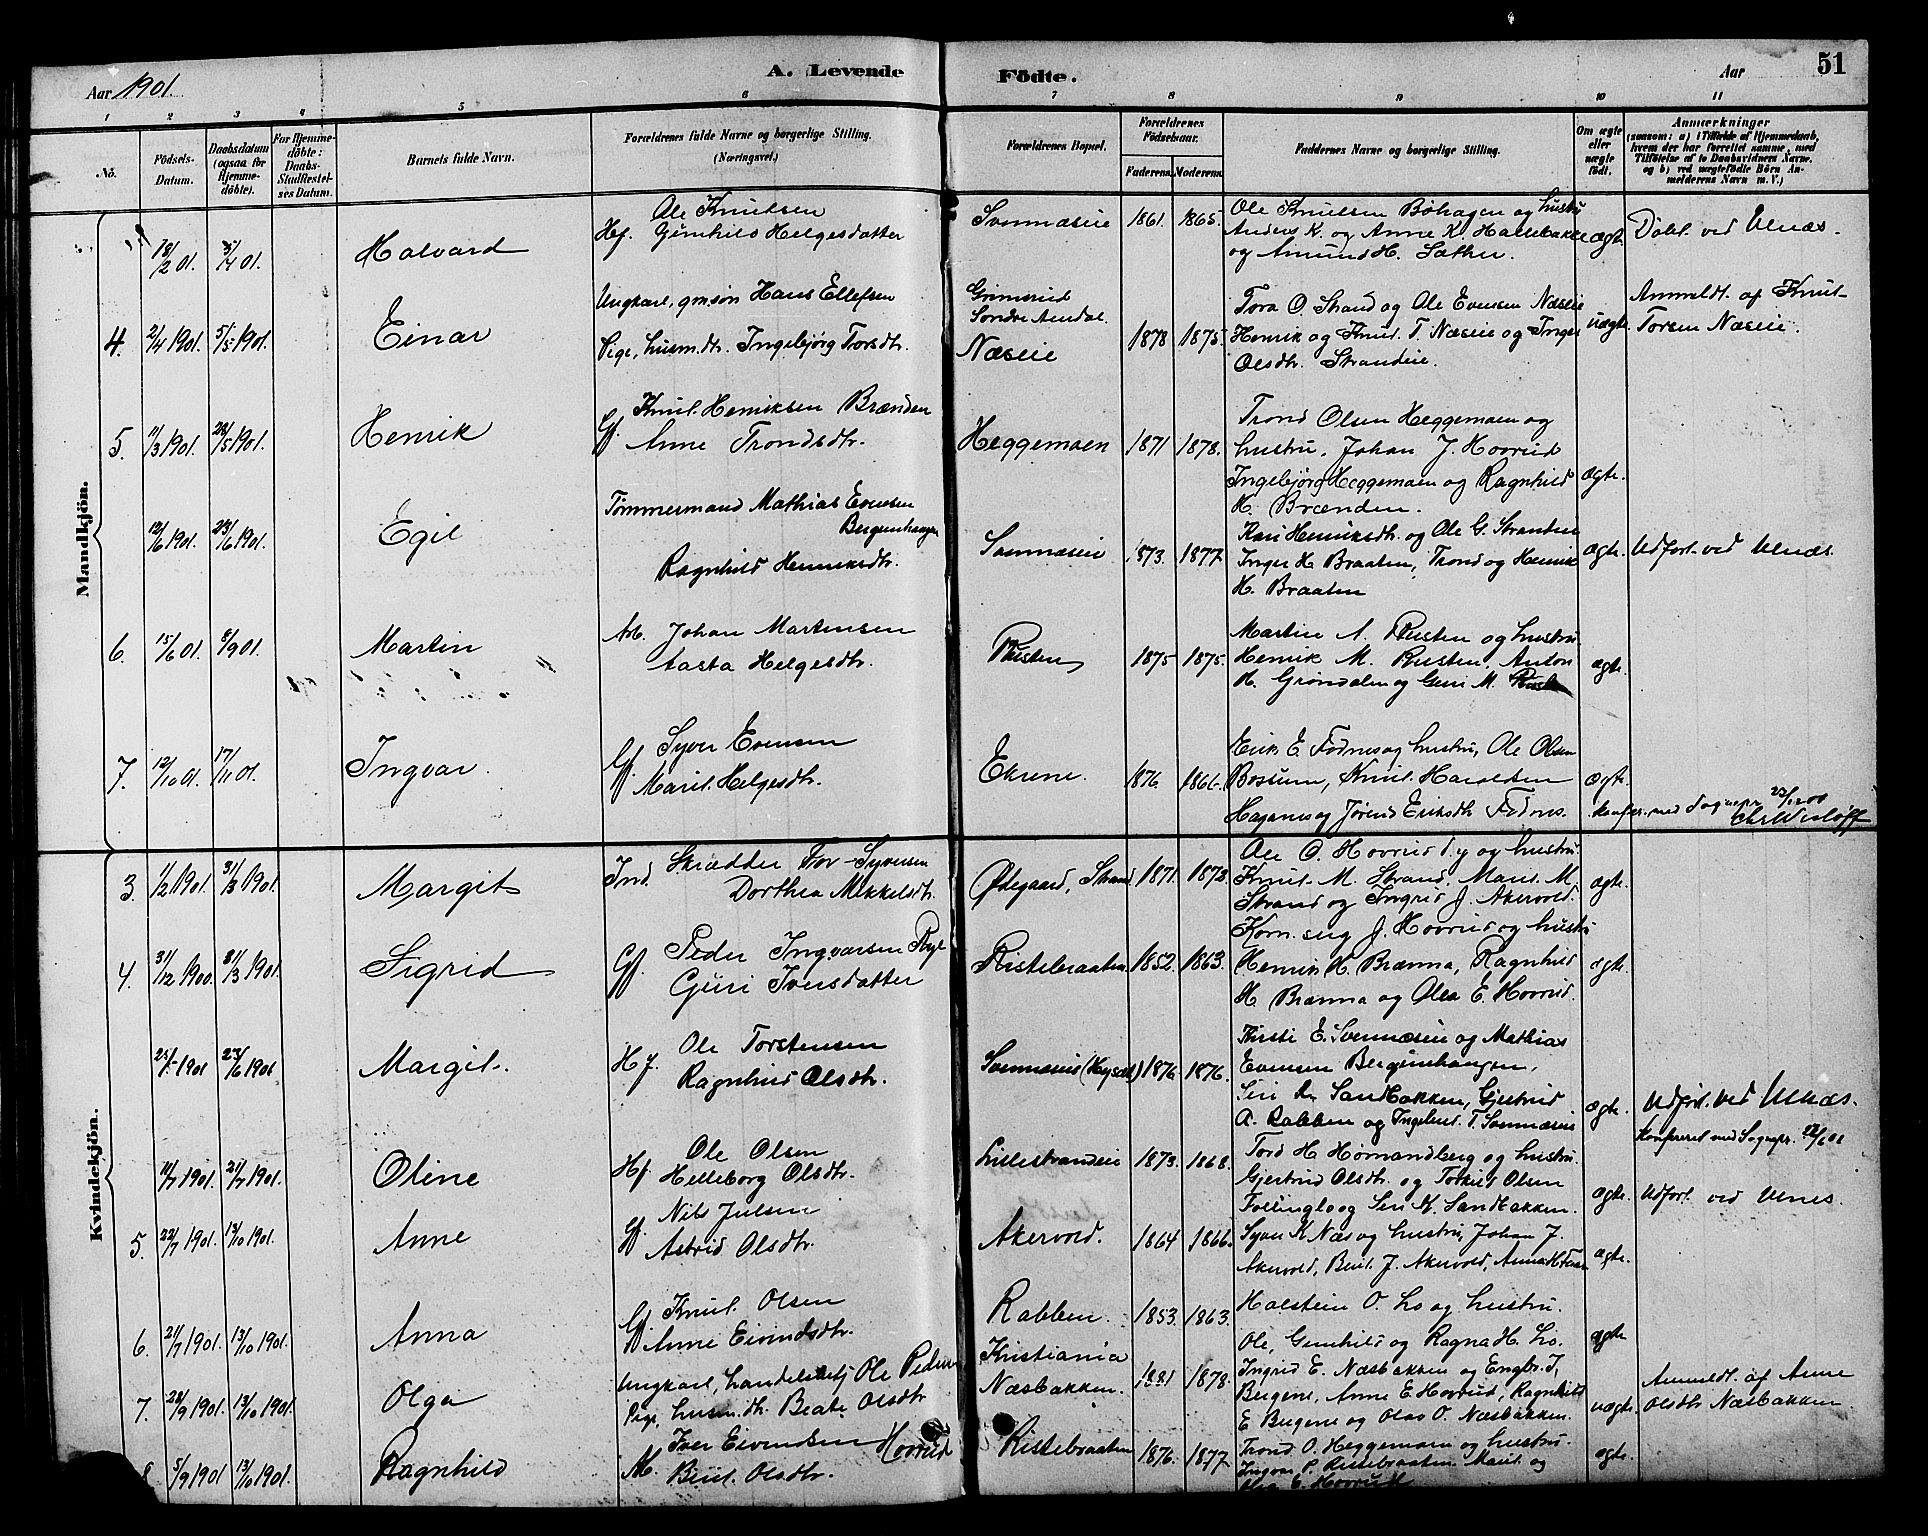 Aar 1901.
A. Levende Födte.
Aar
51
1 2 3 4 5 6 7 8 9 10 11
No.
Födsels-Datum.
Daabsdatum (ogsaa for Hjemme-döbte).
For Hjemme-döbte: Daabs-Stadfæstel-ses Datum.
Barnets fulde Navn.
Forældrenes fulde Navne og borgerlige Stilling. (Næringsvei.)
Forældrenes Bopæl.
Forældrenes Födselsaar.
Faderens. Moderens.
Faddernes Navne og borgerlige Stilling.
Om ægte eller uægte födt.
Anmærkninger
(saasom: a) i Tilfælde af Hjemmedaab, hvem der har forrettet samme, med Tilföielse af to Daabsvidners Navne, og b) ved uægtefödte Börn Anmelderens Navn m. V.)
Mandkjön.
18/2 01. Halvard
Ole Knudsen
Hf. Gunhild Helgesdatter
1861. 1865.
Ole Knudsen Bøhagen og hustru
Anders K. og Anne K. Hallebakke
og Amund H. Sæther.
ægte
Døbt ved Ulnæs.
4. 2/4 1901. 5/5 1901. Einar
Ungkarl, gmsøn Hans Ellefsen
Pige, husm.dtr. Ingebjørg Torsdtr.
Grimsrud
Søndre Aurdal
Næseie
1878 1875.
Tora O. Strand og Ole Evensen Næseie
Henrik og Knut T. Næseie og Inger
Olsdtr. Strandeie.
uægte
Anmeldt af Knut
Torsen Næseie.
5. 11/3 1901. 28/5 1901. Henrik
Gf. Knut Henriksen Brænden
Anne Trondsdtr.
Heggemoen
1871 1878.
Trond Olsen Heggemoen og
hustru, Johan J. Hovrud
Ingebjørg Heggemoen og Ragnhild
H. Brænden.
ægte.
12/6 1901. 23/6 1901. Egil
Tømmermand Mathias Evensen
Bergenhaugen
Ragnhild Henriksdtr.
1873. 1877
Kari Henriksdtr. og Ole G. Strandeie
Inger H. Braaten, Trond og Henrik
H. Braaten
ægte.
Udført ved Ulnæs.
6. 15/6 01. 8/9 01. Martin
Arb. Johan Martinsen
Aasta Helgesdtr.
Rusten
1875 1875.
Martin A. Rusten og hustru
Henrik M. Rusten, Anton
H. Grøndalen og Guri M.
ægte.
7. 12/10 01. 17/11 01. Ingvar.
Gf. Syver Evensen
Marit Helgesdtr.
Ekrene.
1876. 1866.
Erik E. Fodnes og hustru, Ole Olsen
Bossum, Knut Haraldsen
Haganes og Jørend Eriksdtr. Fodnes.
ægte.
Konfer. med Sognepr.
Kvindekjön.
3. 1/2 1901. 31/3 1901. Margit
Ind. Skrædder Tor Syversen
Dorthea Mikkelsdtr.
Ødegaard, Strand
1871. 1873.
Ole O. Hovrud d.y. og hustru.
Knut M. Strand, Marit M.
Strand og Ingrid J. Akervold.
ægte.
4. 31/12 1900. 31/3 1901. Sigrid
Gf. Peder Ingvarsen
Guri Iversdatter
Ristebraaten
1852. 1863.
J. Hovrud og hustru
Henrik H. Brænna, Ragnhild
H. Brænna og Olea E. Hovrud.
ægte.
23/6 1901 Margit.
Hf. Ole Torstensen
Ragnhild Olsdtr.
1876 1876.
Kirsti E. Svennæseie og Mathias
Evensen Bergenhaugen,
Siri Sandbakken, Gjertrud
A. Rabben og Ingebret T. Svennæseie
ægte.
Udført ved Ulnæs.
Konfereret med Sognepr.
11/7 1901. 21/7 1901. Oline
Hf. Ole Olsen
Helleborg Olsdtr.
Lillestrandeie
1873. 1868.
Tord H. og hustru.
Gjertrud Olsdtr. og Torkild Olsen
Føllinglo og Siri K. Sandbakken.
ægte.
Udført ved Ulnes.
5. 22/7 1901. 13/10 1901. Anne
Gf. Nils Julsen
Astrid Olsdtr.
Akervold.
1864 1866.
Syver K. Næs og hustru, Johan J.
Akervold, Berit J. Akervold,
ægte.
6. 21/7 1901. 13/10 1901. Anna
Gf. Knut Olsen
Anne Eivindsdtr.
Rabben.
1853. 1863.
Halstein O. Lo og hustru.
Ole, Gunhild og Ragna H. Lo.
ægte
7. 28/9 1901. 13/10 1901. Olga
Ungkarl, handelsbetj Ole Pedersen
Pige, husm.dtr. Beate Olsdtr
Kristiania
Næsbakken.
1881 1878.
Ingrid E. Næsbakken og Engbr. I.
Bergene, Anne E. Hovrud, Ragnhild
E. Bergene og Olav O. Næsbakken.
uægte.
Anmeldt af Anne
Olsdtr Næsbakken
8 5/9 1901 13/10 1901. Ragnhild
M. Iver Eivindsen Hovrud
Berit Olsdtr.
Ristebraaten
1876. 1877
Trond O. Heggemoen og hustru.
Ingvar P. Ristebraaten, Marit og
Olea E. Hovrud
ægte.